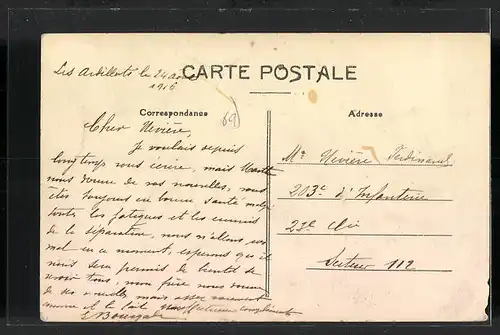 Les Ardillots le 24 août
1916
CARTE POSTALE
Correspondance
69
Adresse
Cher Nevière,
Je voulais depuis
longtemps vous écrire, mais
nous donne de vos nouvelles, vous
êtes toujours en bonne santé malgré
toutes les fatigues et les ennuis
de la séparation, nous n'allons pas
mal en ce moment, espérons que il
nous sera permis de bientôt se
revoir tous, mon frère nous donne
de ses nouvelles, mais assez rarement
comme et le
Mr Nevière Ferdinand
203e d'Infanterie
23e Cie
Secteur 112